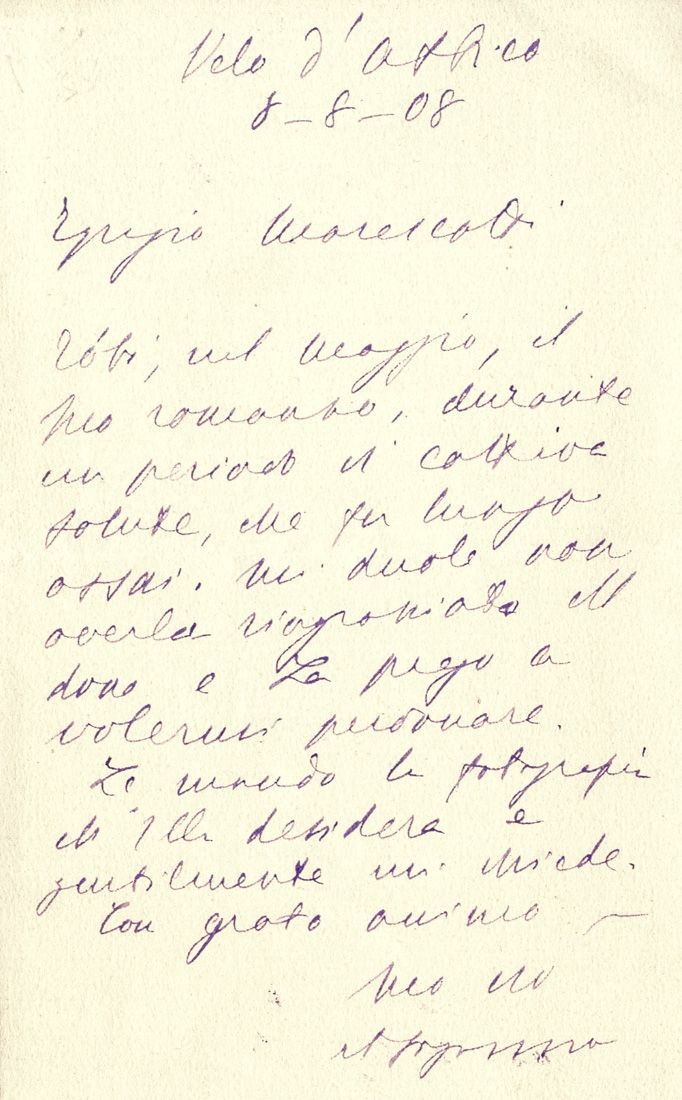 Velo d'Astico
8-8-08
Egregio Marescotti
Ebbi, nel Maggio, il
suo romanzo, durante
un periodo di cattiva
salute, che fu lungo
assai. Mi duole non
averla ringraziata del
dono e La prego a
volermi perdonare.
Le mando la fotografia
ch'Ella desidera e
gentilmente mi chiede.
Con grato animo —
suo
A Fogazzaro